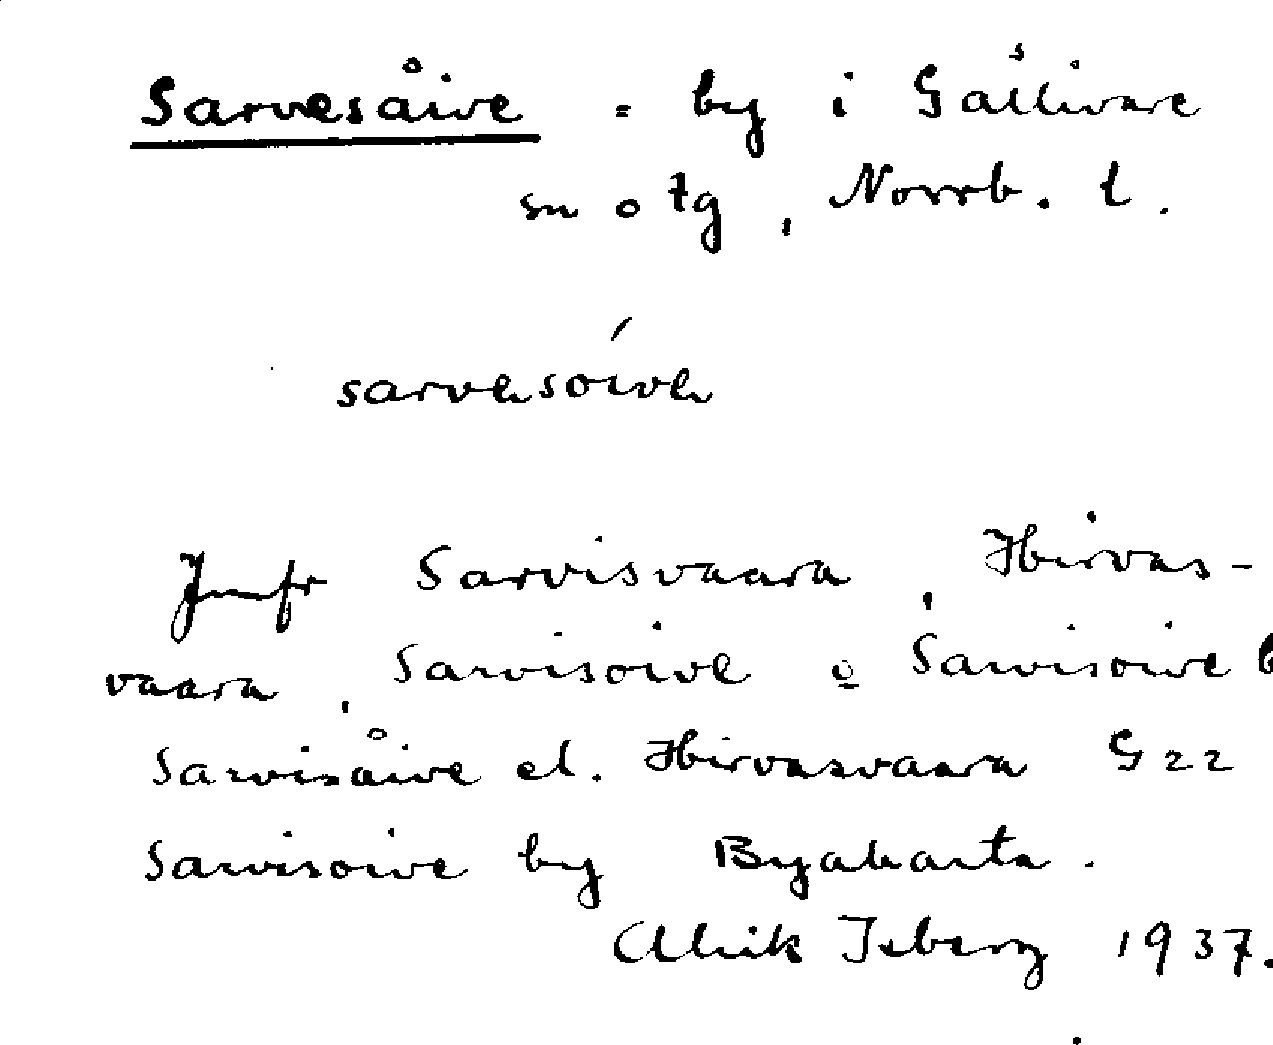 Sarvesåive = by i Gällivare
sn o tg, Norrb. l.
sarvesoive
Jmfr Sarvisvaara, Hirvas-
vaara, Sarvisoive o Sarvisoive b
Sarvisåive el. Hirvasvaara G22
Sarvisoive by Byakarta.
Alrik Isberg 1937.